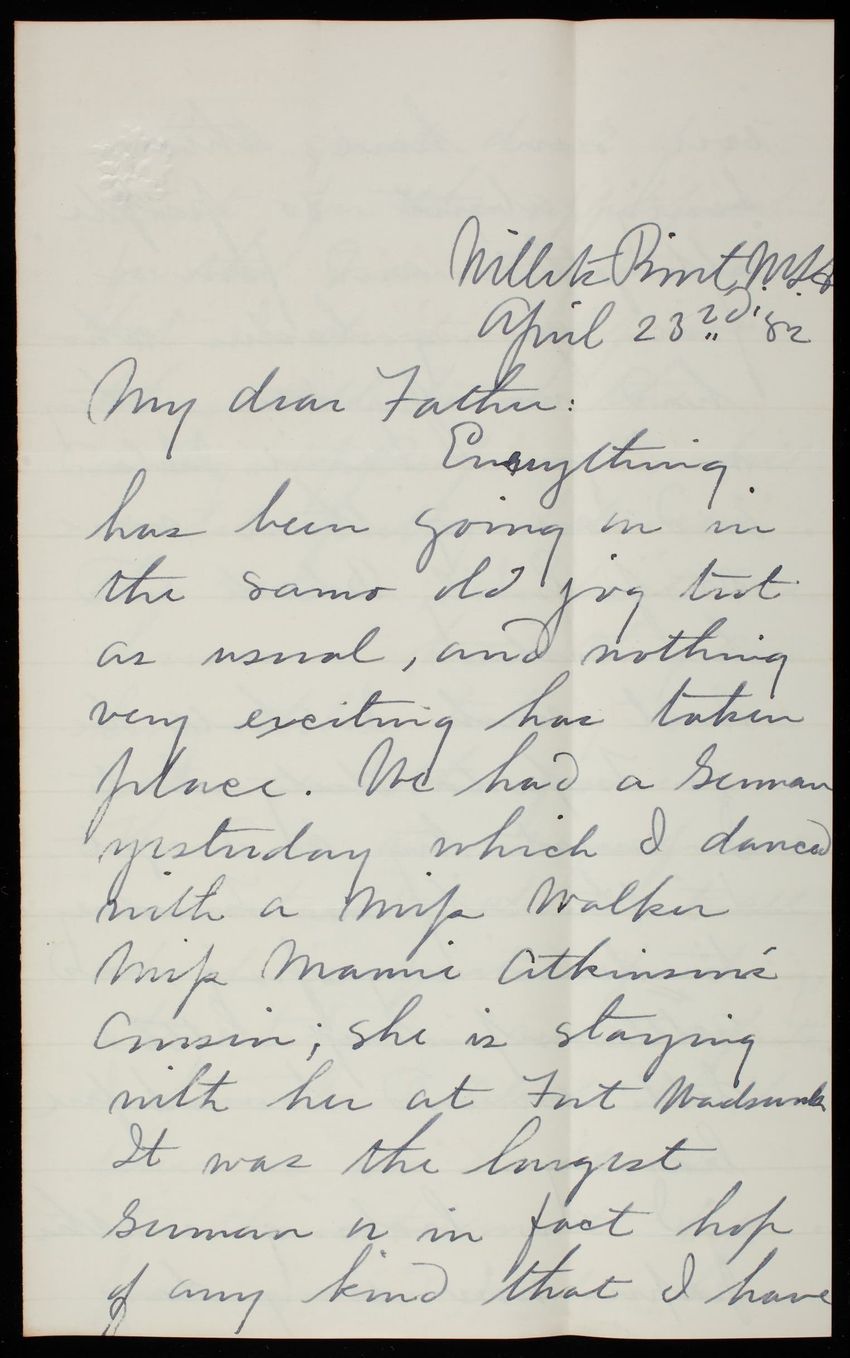 Willets Point, N.Y.
April 23rd, '82
My dear Father:
Everything
has been going on in
the same old jog trot
as usual, and nothing
very exciting has taken
place. We had a German
yesterday which I danced
with a Miss Walker
Miss Mamie Atkinson's
Cousin; she is staying
with her at Fort Wadsworth
It was the largest
German or in fact hop
of any kind that I have